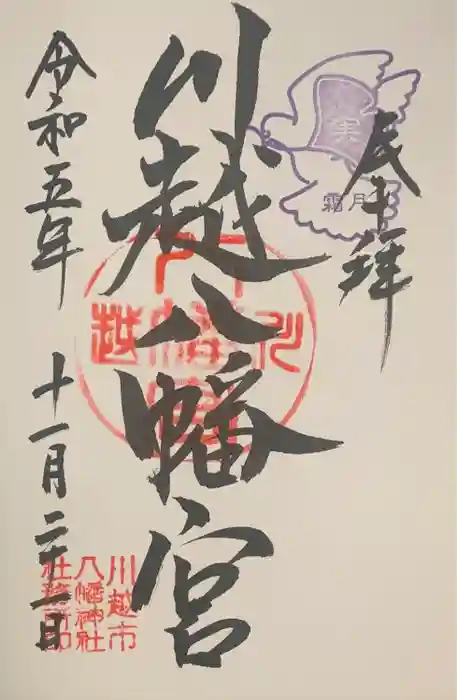 奉拝
実
霜月
川越八幡宮
川越
八幡宮
令和五年 十一月二十二日
川越市
八幡神社
社務所印